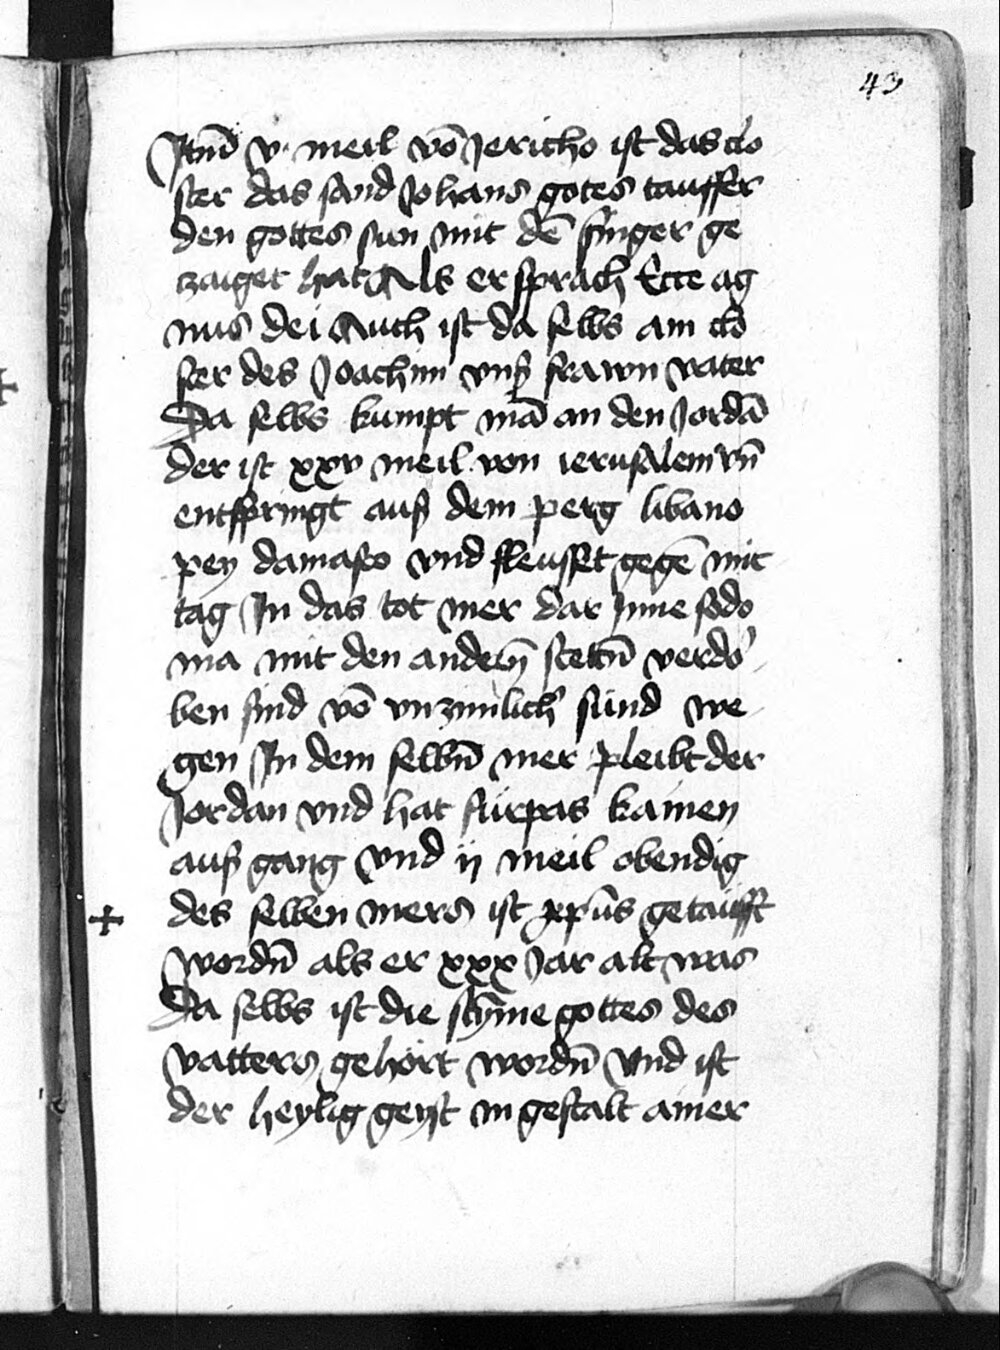 43
Itm̄ v· meil vō Jericho ist das clo
ster das sand Johans gotes tauffer
den gottes sun mit dē finger ge
zaiget hat Als er sprach Ecce ag
nus dei Auch ist da selbs am clo
ster des Joachim vnß frawn vater
Da selbs kumpt mā an den Jordā
der ist xxv meil von ierusalem vn̄
entspringt auß dem perg libano
pey damasco vnd fleusset gegē mit
tag In das tot mer dar Inne sodo
ma mit den andern̄ stettn̄ verdo
ben sind vō vnzimlich sünd we
gen In dem selbn̄ mer pleibt der
Jordan vnd hat fürpas kainen
auß gang vnd ij meil obendig
+ des selben mers ist xp̄us getaufft
wordn̄ als er xxx Jar alt was
Da selbs ist die stȳme gottes des
vatters gehört wordn̄ Vnd ist
der heylig geyst in gestalt ainer